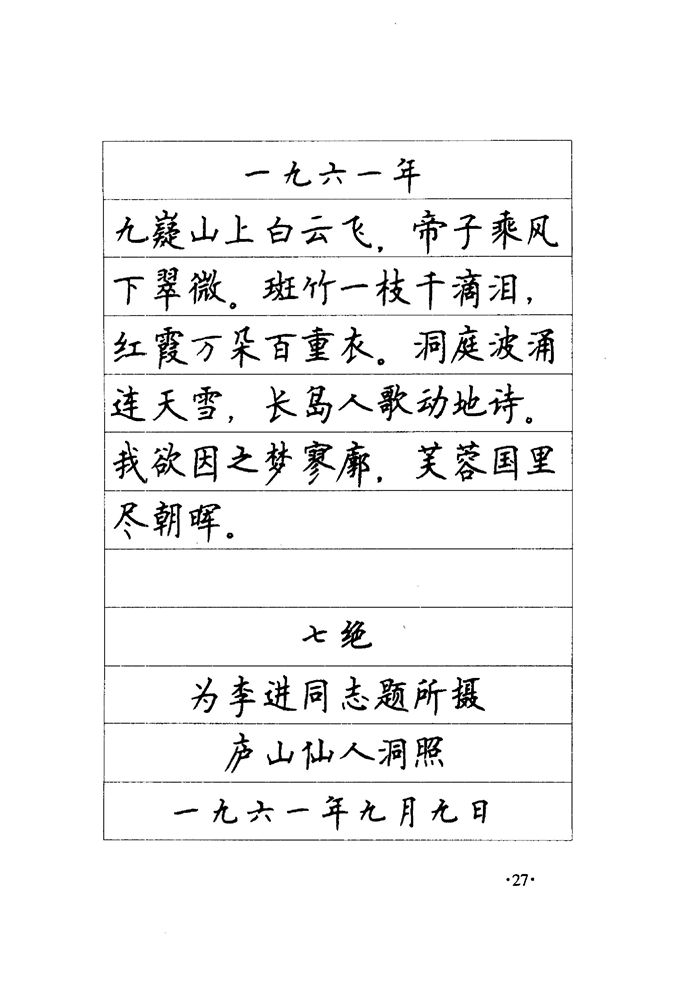 一九六一年
九嶷山上白云飞，帝子乘风
下翠微。斑竹一枝千滴泪，
红霞万朵百重衣。洞庭波涌
连天雪，长岛人歌动地诗。
我欲因之梦寥廓，芙蓉国里
尽朝晖。
七绝
为李进同志题所摄
庐山仙人洞照
一九六一年九月九日
·27·